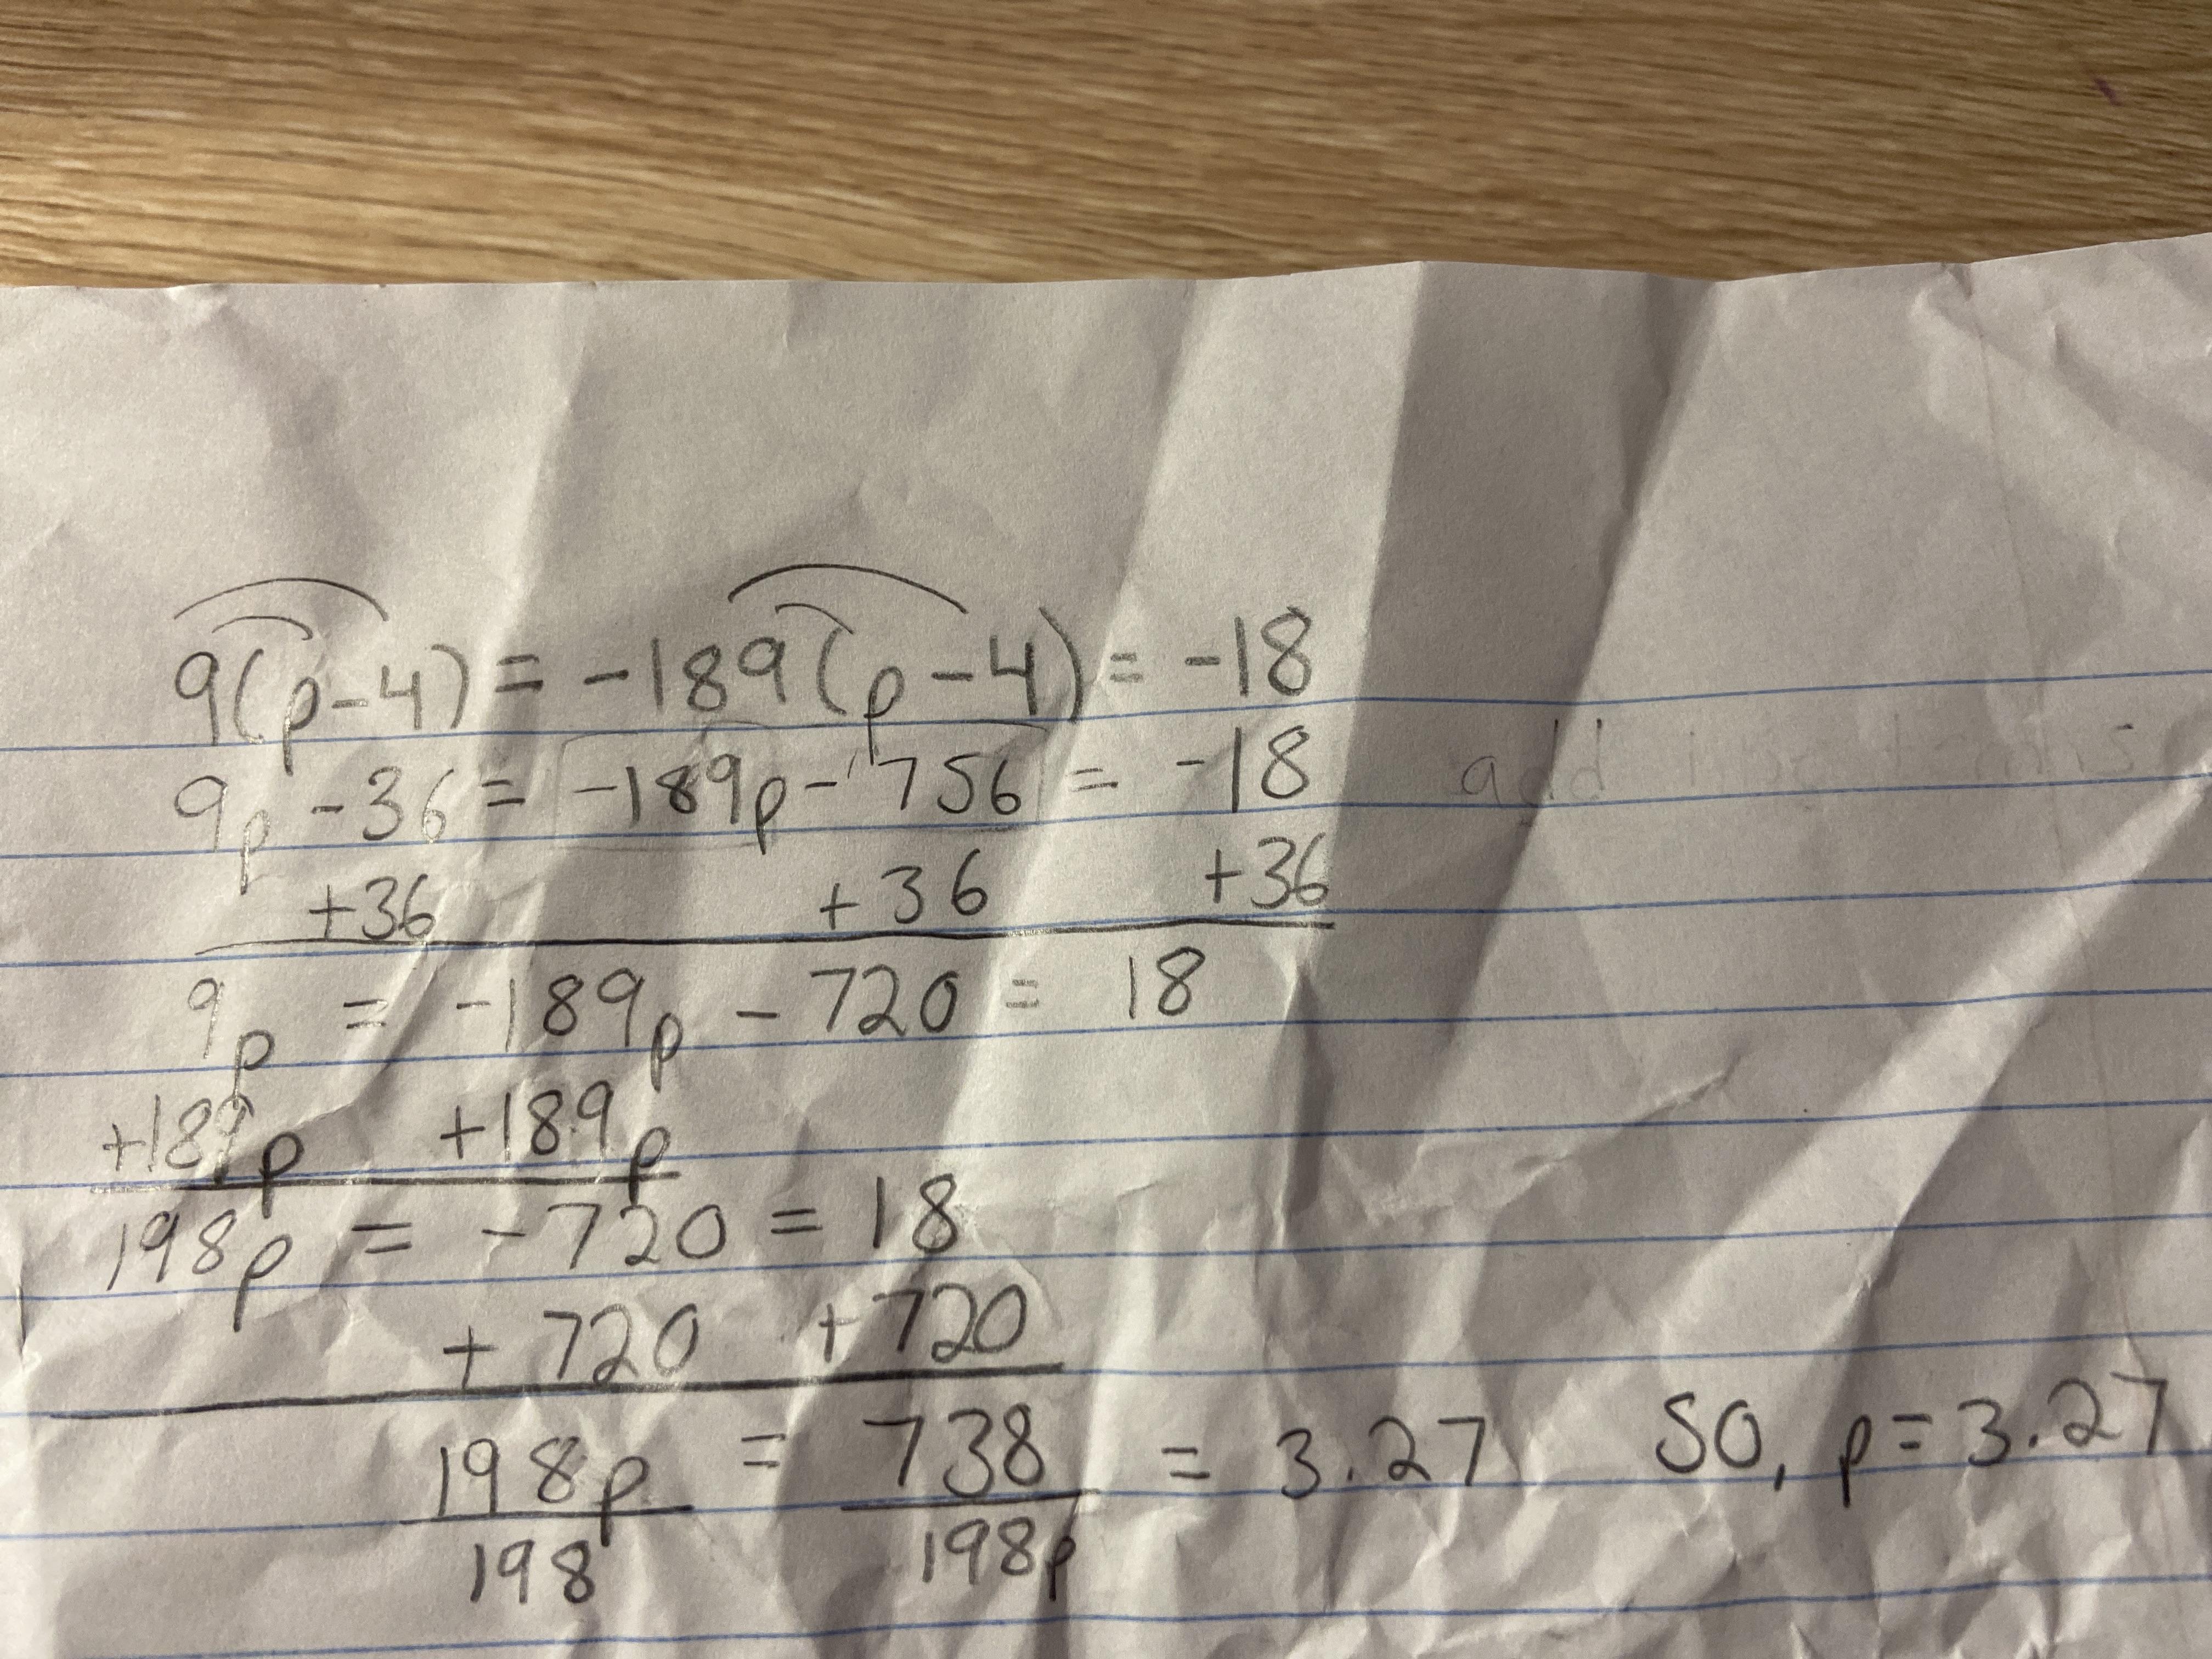 9(p-4) = -189(p-4) = -18
9p -36 = -189p - 756 = -18 add
+36 +36 +36
9p = -189p - 720 = 18
+189p +189p
198p = -720 = 18
+ 720 +720
198p = 738 = 3.27 So, p=3.27
198 198p